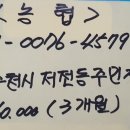 <농협>
-0076-4579
천시 저전동주민자
0.000 (3개월)